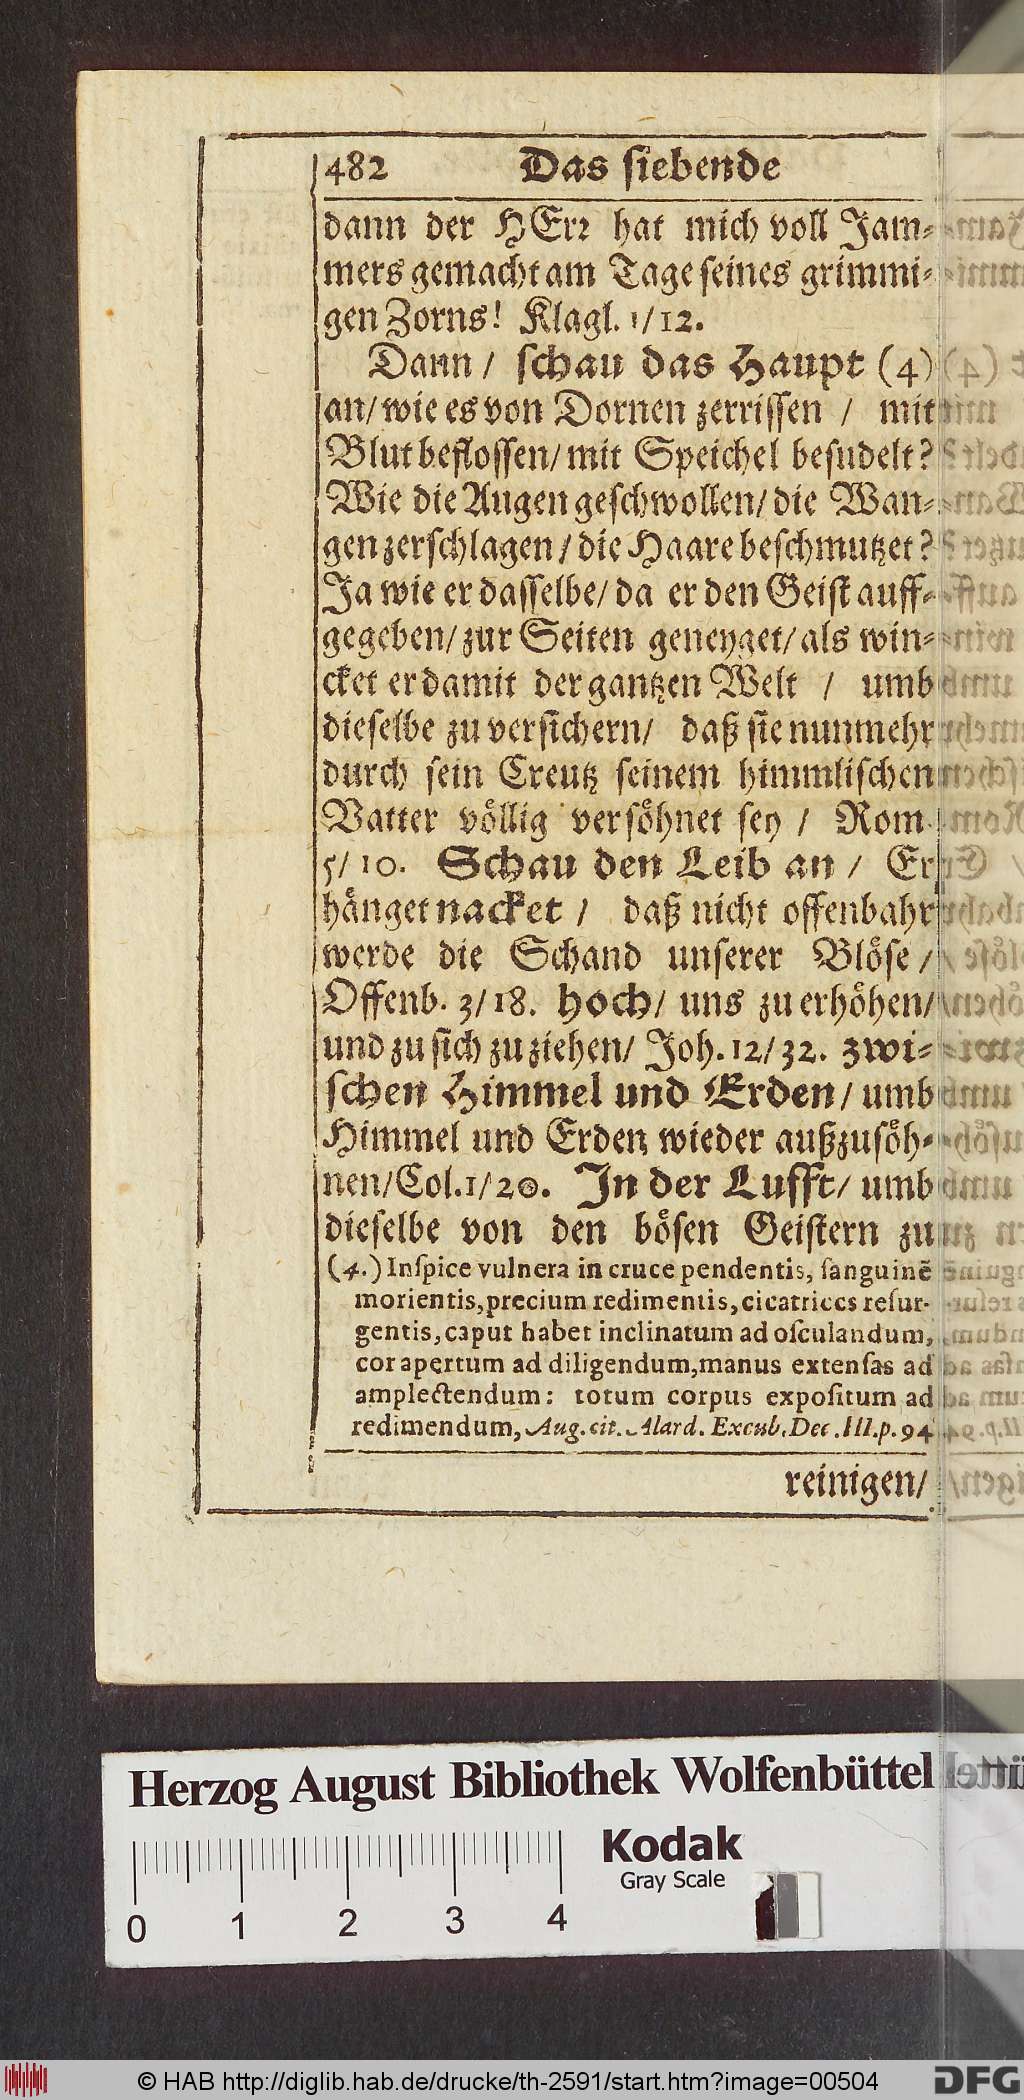 482 Das siebende
dann der HErr hat mich voll Jam-
mers gemacht am Tage seines grimmi-
gen Zorns! Klagl. 1/12.
Dann / schau das Haupt (4)
an/ wie es von Dornen zerrissen / mit
Blut beflossen/ mit Speichel besudelt?
Wie die Augen geschwollen/ die Wan-
gen zerschlagen / die Haare beschmutzet?
Ja wie er dasselbe/ da er den Geist auff-
gegeben/ zur Seiten geneyget/ als win-
cket er damit der gantzen Welt / umb
dieselbe zu versichern/ daß sie nunmehr
durch sein Creutz seinem himmlischen
Vatter völlig versöhnet sey / Rom.
5/10. Schau den Leib an / Er
hänget nacket / daß nicht offenbahr
werde die Schand unserer Blöse /
Offenb. 3/18. hoch/ uns zu erhöhen/
und zu sich zu ziehen/ Joh. 12/32. zwi-
schen Himmel und Erden/ umb
Himmel und Erden wieder außzusöh-
nen/ Col. 1/20. In der Lufft/ umb
dieselbe von den bösen Geistern zu
(4.) Inſpice vulnera in cruce pendentis, ſanguinẽ
morientis, precium redimentis, cicatrices reſur-
gentis, caput habet inclinatum ad oſculandum,
cor apertum ad diligendum, manus extenſas ad
amplectendum: totum corpus expoſitum ad
redimendum, Aug. cit. Alard. Excub. Dec. III. p. 94
reinigen/
Herzog August Bibliothek Wolfenbüttel
Kodak
Gray Scale
0 1 2 3 4
© HAB http://diglib.hab.de/drucke/th-2591/start.htm?image=00504
DFG